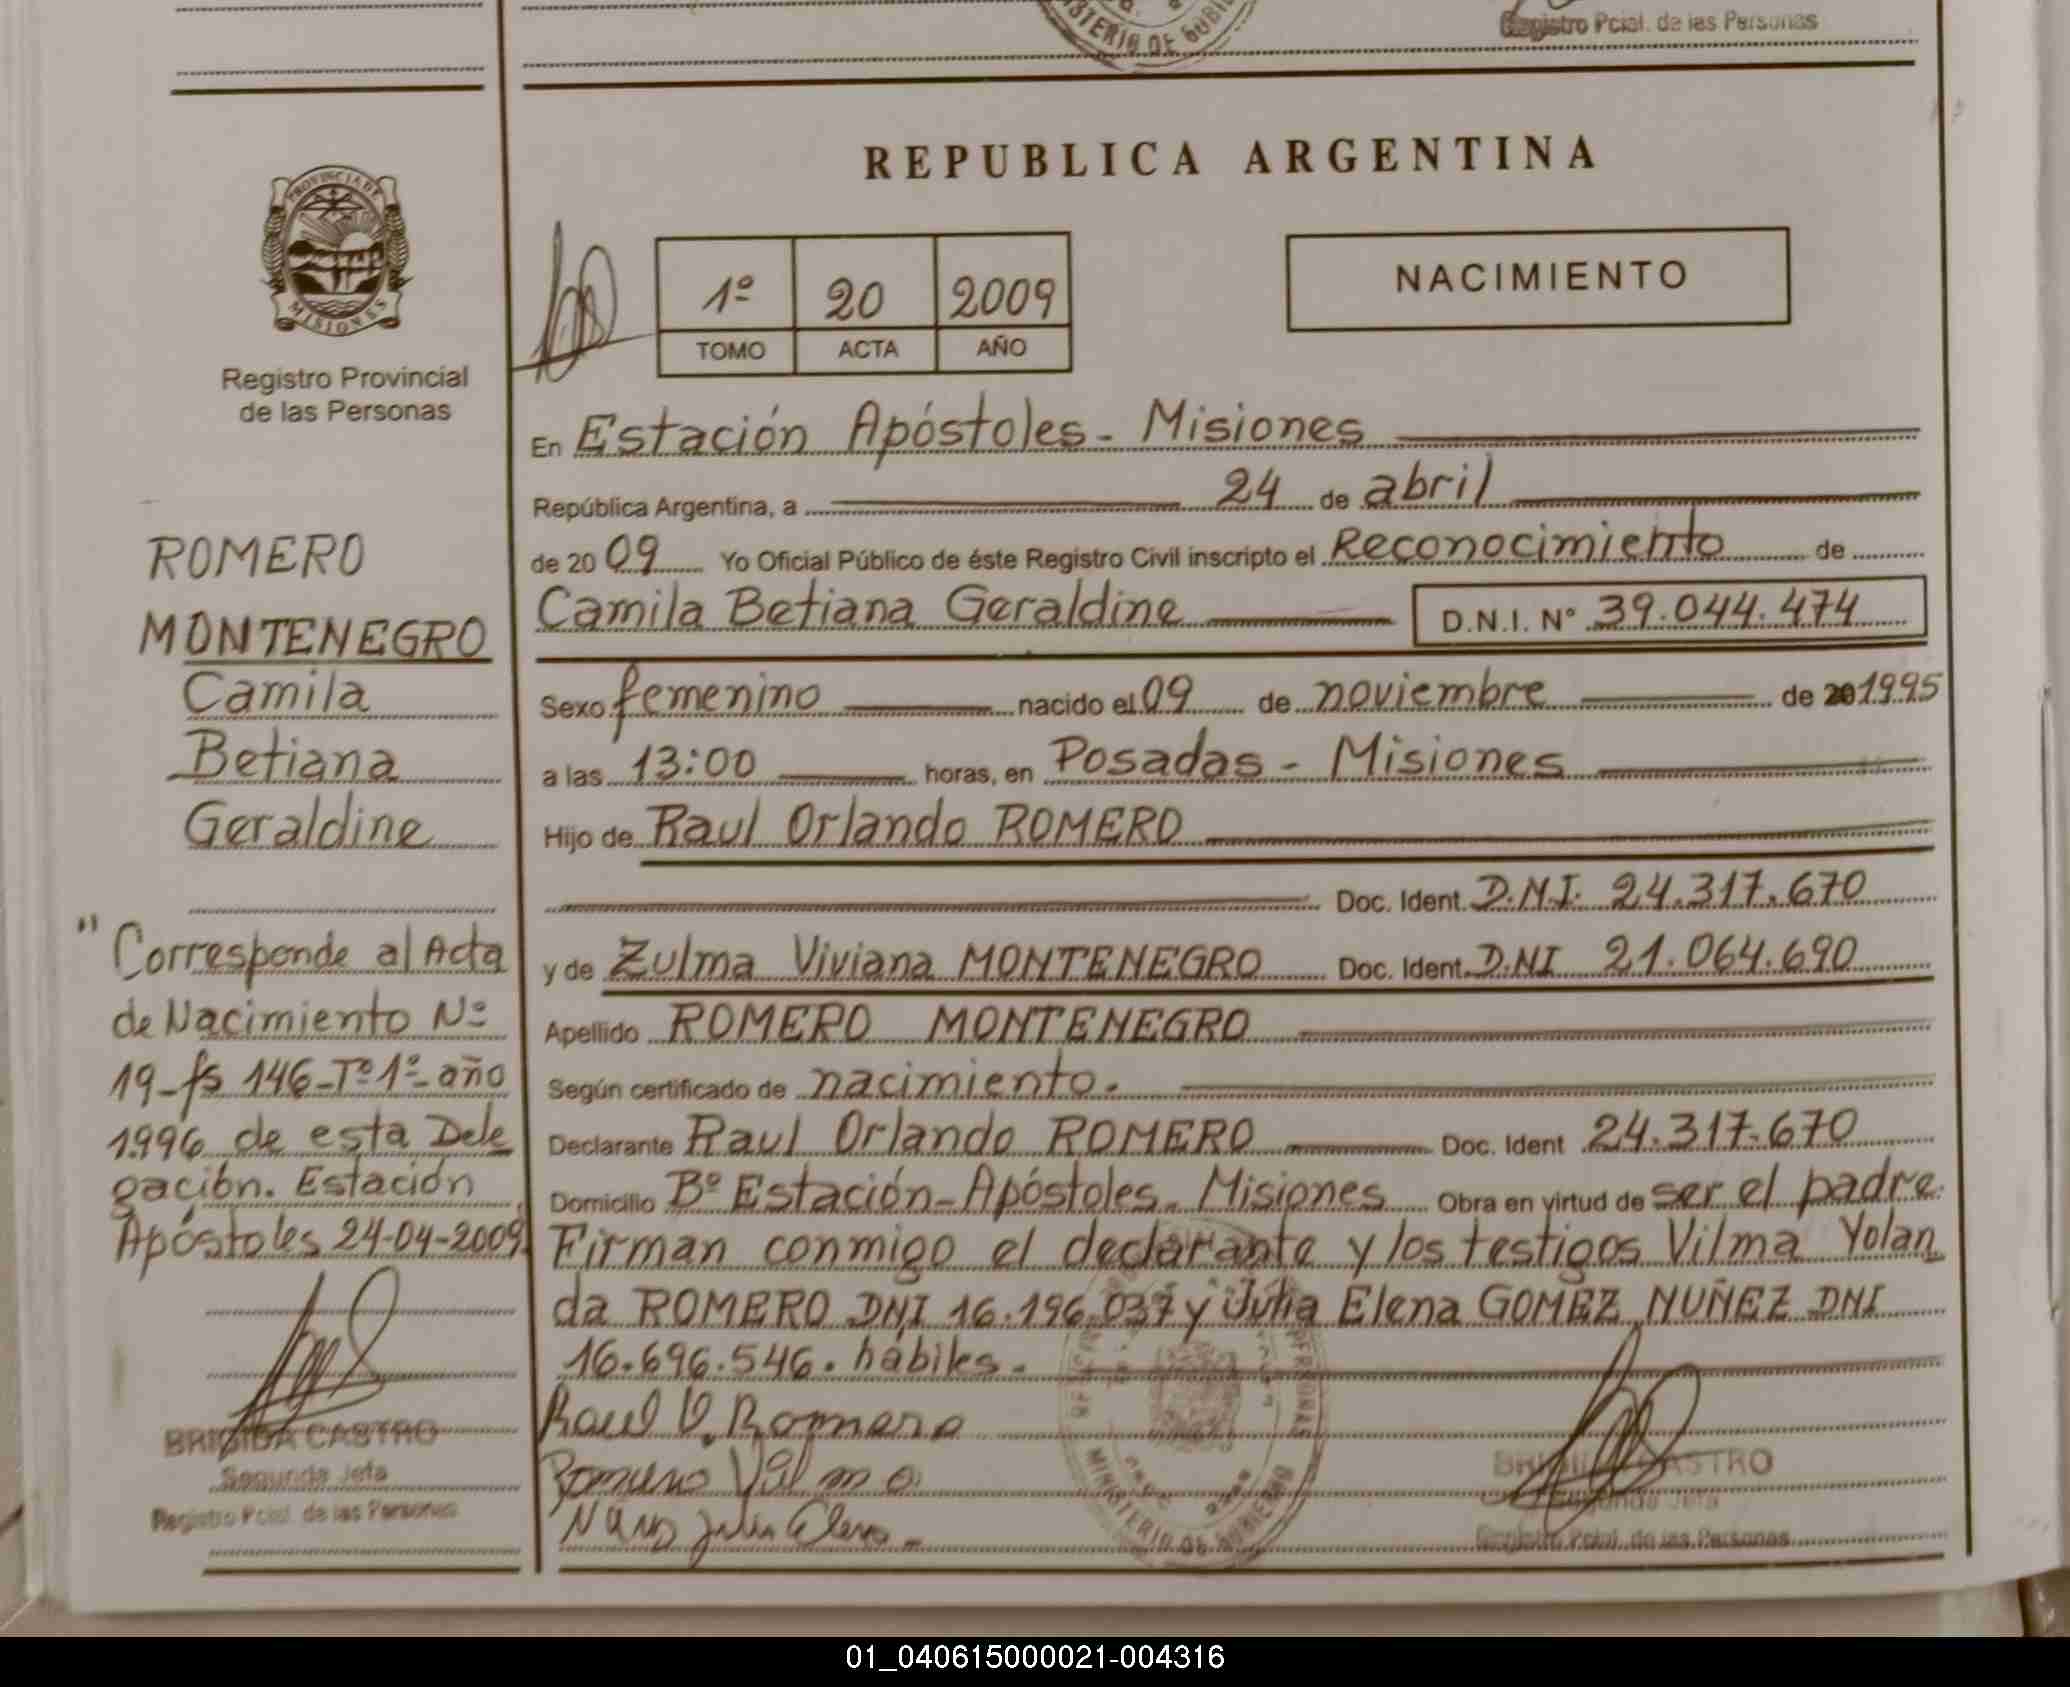 Registro Pcial. de las Personas
MINISTERIO DE GOBIE
REPUBLICA ARGENTINA
PROVINCIA DE
MISIONES
Registro Provincial
de las Personas
1º 20 2009
TOMO ACTA AÑO
NACIMIENTO
ROMERO
MONTENEGRO
Camila
Betiana
Geraldine
"Corresponde al Acta
de Nacimiento Nº
19-fs 146-Tº1º-año
1996 de esta Dele
gación. Estación
Apóstoles 24-04-2009
BRIGIDA CASTRO
Segunda Jefa
Registro Pcial. de las Personas
En Estación Apóstoles - Misiones
República Argentina, a 24 de abril
de 2009 Yo Oficial Público de éste Registro Civil inscripto el Reconocimiento de
Camila Betiana Geraldine D.N.I. Nº 39.044.474
Sexo femenino nacido el 09 de noviembre de 20 1995
a las 13:00 horas, en Posadas - Misiones
Hijo de Raul Orlando ROMERO
Doc. Ident. D.N.I. 24.317.670
y de Zulma Viviana MONTENEGRO Doc. Ident. DNI 21.064.690
Apellido ROMERO MONTENEGRO
Según certificado de nacimiento.
Declarante Raul Orlando ROMERO Doc. Ident 24.317.670
Domicilio Bº Estación-Apóstoles. Misiones Obra en virtud de ser el padre.
Firman conmigo el declarante y los testigos Vilma Yolan
da ROMERO DNI 16.196.037 y Julia Elena GOMEZ NUÑEZ DNI
16.696.546. hábiles.
Raul O. Romero
Romero Vilma
Nuñez Julia Elena
MINISTERIO DE GOBIERNO
BRIGIDA CASTRO
Segunda Jefa
Registro Pcial. de las Personas
01_040615000021-004316